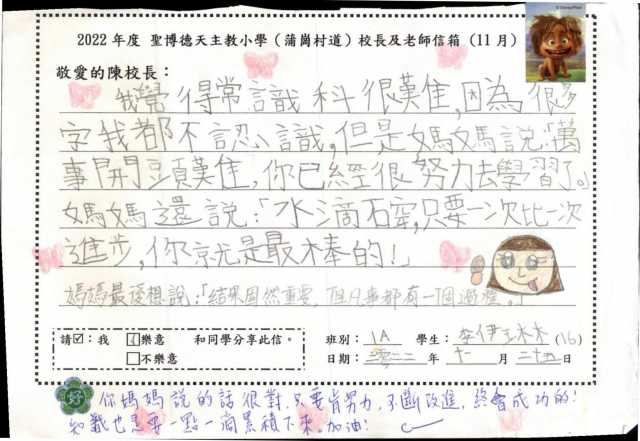 ©Disney/Pixar
2022 年度 聖博德天主教小學（蒲崗村道）校長及老師信箱（11 月）
敬愛的陳校長：
我覺得常識科很難，因為很多
字我都不認識，但是媽媽說：「萬
事開頭難，你已經很努力去學習了。」
媽媽還說：「水滴石穿，只要一次比一次
進步，你就是最棒的！」
媽媽最後想說：「結果固然重要，但凡事都有一個過程。」
請☑：我 ☑樂意 和同學分享此信。
□不樂意
班別： 1A 學生： 李伊 (16)
日期： 二零二二 年 十一 月 二十四 日
好
你媽媽說的話很對，只要肯努力，不斷改進，終會成功的！
知識也需要一點一滴累積下來。加油！